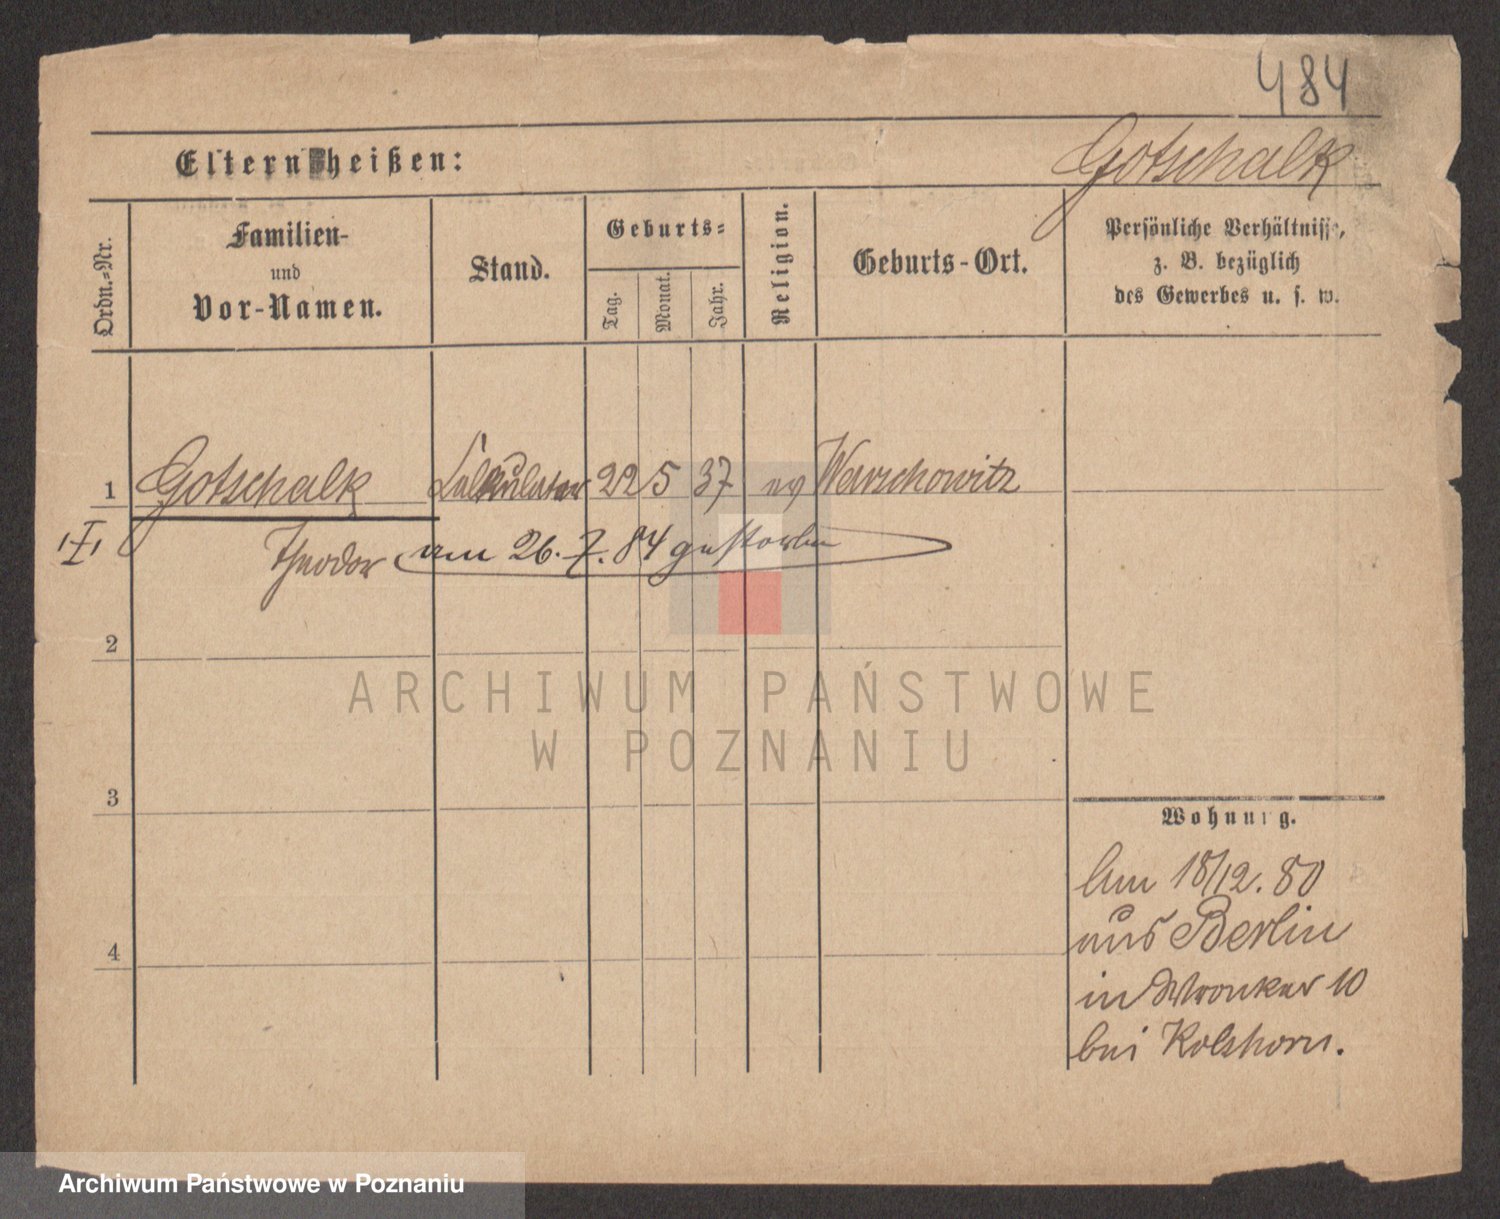 484
Eltern heißen:
Gotschalk
Ordn.-Nr.
Familien-
und
Vor-Namen.
Stand.
Geburts-
Tag.
Monat.
Jahr.
Religion.
Geburts-Ort.
Persönliche Verhältnisse,
z. B. bezüglich
des Gewerbes u. s. w.
1 Gotschalk Kalkulator 22 5 37 ev Warschowitz
Theodor am 26. 7. 84 gestorben
2
ARCHIWUM PAŃSTWOWE
W POZNANIU
3
Wohnung.
Am 18/12. 80
aus Berlin
4
in Wronker 10
bei Kolshorn.
Archiwum Państwowe w Poznaniu